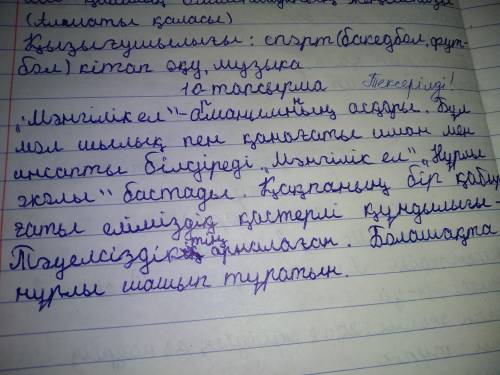 (Алматы қаласы)
Қызығушылығы: спорт (баскедбол, фут-
бол) кітап оқу, музыка
10 тапсырма Тексерілді!
"Мәнгілік ел" - аманшының асқары. Бұл
мол шылық пен қанағаты имон мен
инсапты білдіреді "Мәнгілік ел", "Нұрлы
жолы" бастады. Қақпаның бір қабыр
ғаты еліміздің қастерлі құндылығы-
Тәуелсіздіктің арналаған. Болашақта
нұрлы шашып тұратын.